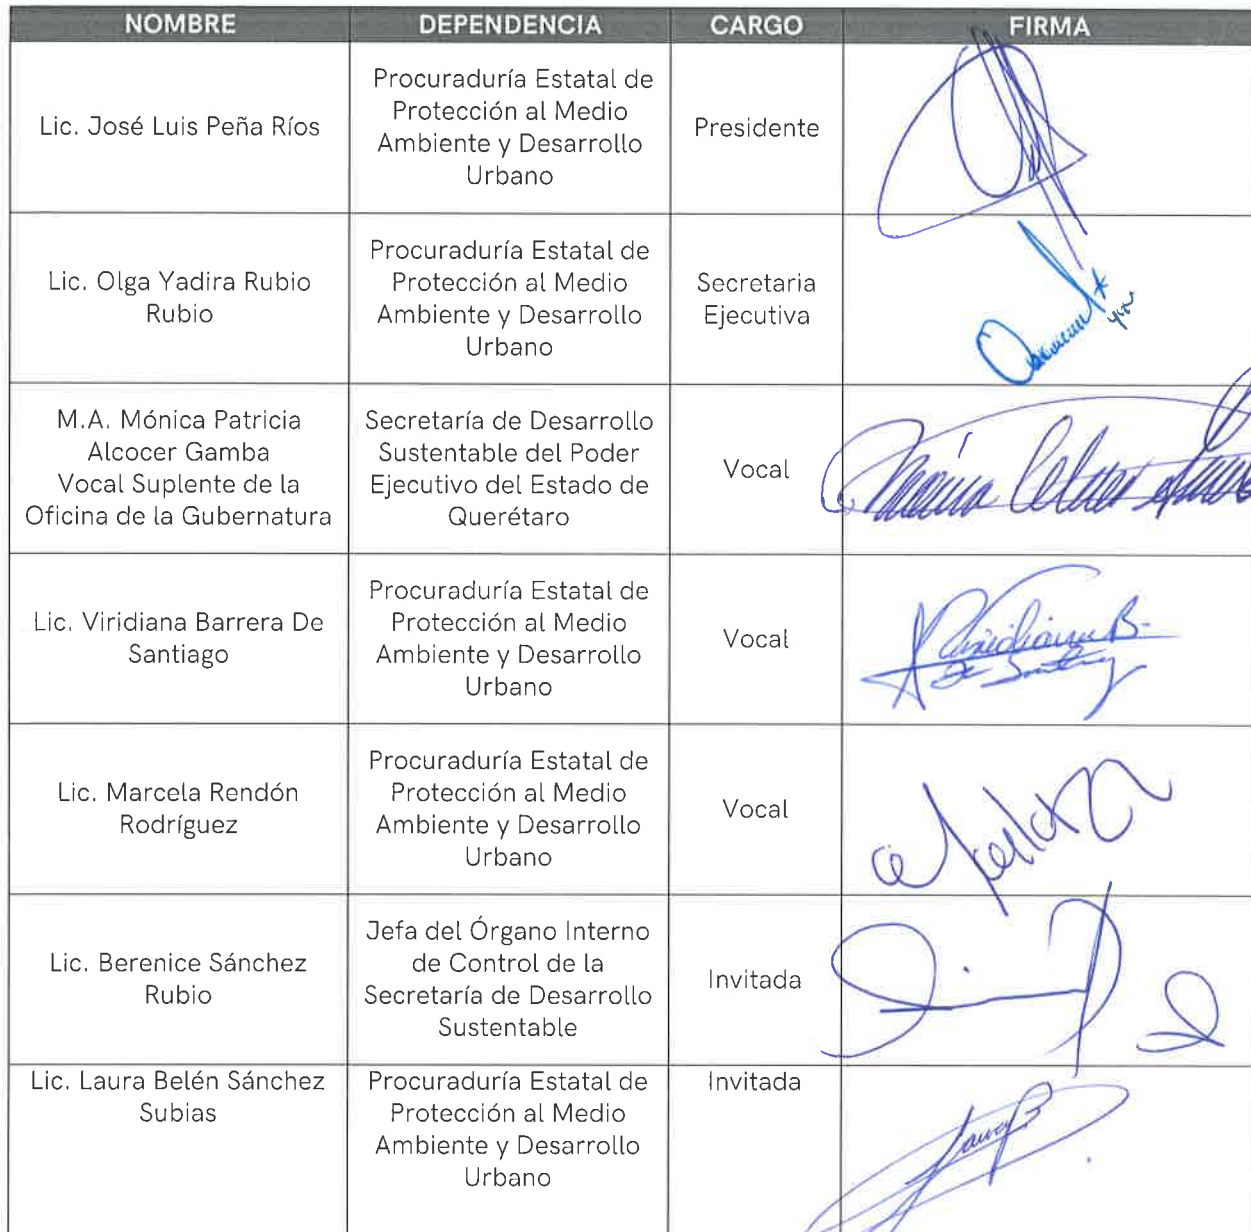 NOMBRE DEPENDENCIA CARGO FIRMA
Lic. José Luis Peña Ríos
Procuraduría Estatal de
Protección al Medio
Ambiente y Desarrollo
Urbano
Presidente
Lic. Olga Yadira Rubio
Rubio
Procuraduría Estatal de
Protección al Medio
Ambiente y Desarrollo
Urbano
Secretaria
Ejecutiva
M.A. Mónica Patricia
Alcocer Gamba
Vocal Suplente de la
Oficina de la Gubernatura
Secretaría de Desarrollo
Sustentable del Poder
Ejecutivo del Estado de
Querétaro
Vocal
Lic. Viridiana Barrera De
Santiago
Procuraduría Estatal de
Protección al Medio
Ambiente y Desarrollo
Urbano
Vocal
Viridiana B.
De
Lic. Marcela Rendón
Rodríguez
Procuraduría Estatal de
Protección al Medio
Ambiente y Desarrollo
Urbano
Vocal
Lic. Berenice Sánchez
Rubio
Jefa del Órgano Interno
de Control de la
Secretaría de Desarrollo
Sustentable
Invitada
Lic. Laura Belén Sánchez
Subias
Procuraduría Estatal de
Protección al Medio
Ambiente y Desarrollo
Urbano
Invitada